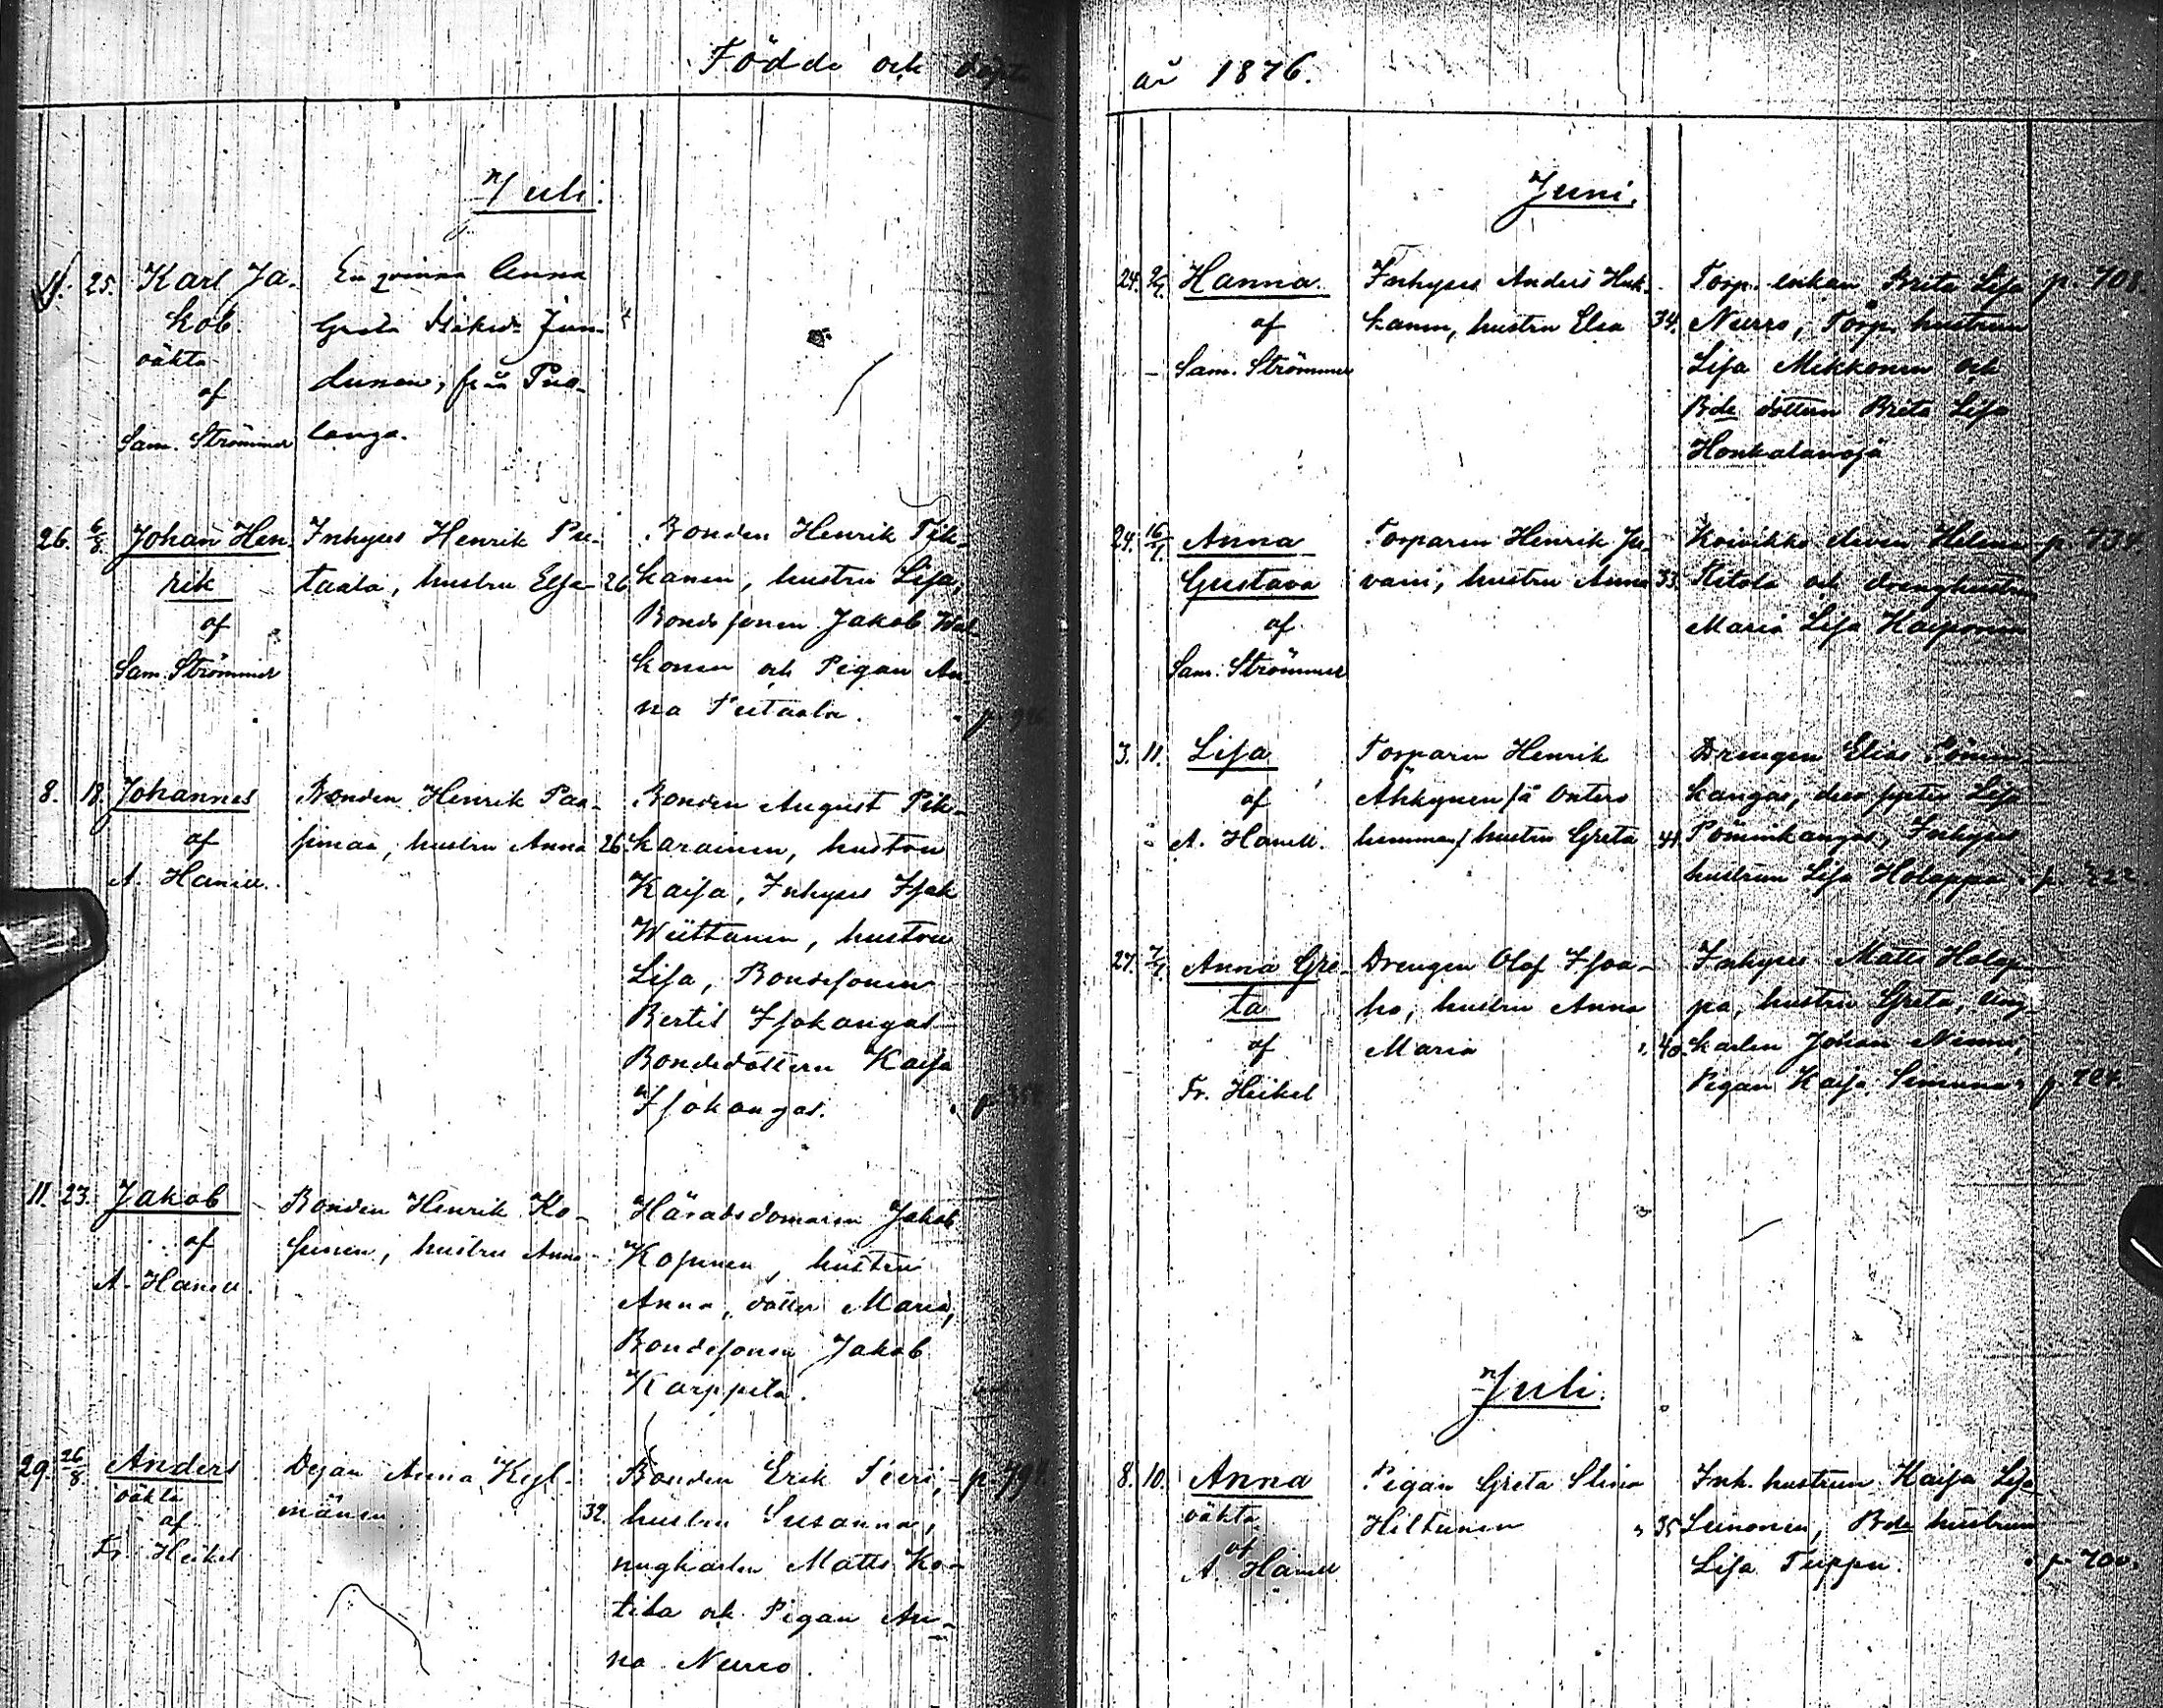 Födde och döpte
år 1876.
Juli.
11. 25. Karl Ja-
kob
oäkta
af
Sam. Strömmer
En qvinna Anna
Greta
från Puo-
langa.
26. 6/8 Johan Hen-
rik
af
Sam. Strömmer
Inhyses Henrik Pie-
taala, hustru Elsa 26
Bonden Henrik
kanen, hustru Lisa,
Bondesonen Jakob
konen och Pigan An-
na Pietaala.
8. 18. Johannes
af
A. Hanell.
Bonden Henrik Paa-
simaa, hustru Anna 26.
Bonden August Pik-
karainen, hustru
Kaisa, Inhyses Isak
Wiittanen, hustru
Lisa, Bondesonen
Bertil Isokangas
Bondedottern Kaisa
Isokangas.
11. 23. Jakob
af
A. Hanell
Bonden Henrik Ko-
sunen, hustru Anna
Häradsdomaren Jakob
Kosunen, hustru
Anna, dotter Maria,
Bondesonen Jakob
Karppila.
29. 26/8 Anders
oäkta
af
Fr. Heikel
Dejan Anna Kyl-
mänen 32.
Bonden Erik Pieri, p. 791
hustru Susanna,
ungkarlen Matts Ko-
tila och Pigan An-
na Nurro.
Juni.
24. Hanna
af
Sam. Strömmer
Inhyses Anders Huk-
kanen, hustru Elsa 34.
Torp. enkan Brita Lisa p. 708.
Nurro, Torp. hustrun
Lisa Mikkonen och
Bde dottren Brita Lisa
Honkalanoja
24. 16/7 Anna
Gustava
af
Sam. Strömmer
Torparen Henrik Ju-
vani, hustru Anna 33.
Koivikko eleven Helena p. 734.
Kitola och drenghustrun
Maria Lisa Karponen
3. 11. Lisa
af
A. Hanell.
Torparen Henrik
Ähkynen /å Ontero
hemman/ hustru Greta 41.
Drengen Elias Pönnin-
kangas, dess syster Lisa
Pönninkangas, Inhyses
hustrun Lisa Holappa p. 722.
27. 2/7 Anna Gre-
ta
af
Fr. Heikel
Drengen Olof Isoa-
ho, hustru Anna
Maria 40.
Inhyses Matts Holap-
pa, hustru Greta, ung-
karlen Johan Niemi,
Pigan Kaisa p. 724.
Juli.
8. 10. Anna
oäkta
af
A. Hanell
Pigan Greta Stina
Hiltunen 35
Inh. hustrun Kaisa Lisa
Leinonen, Bde hustrun
Lisa Tuppu. p. 700.